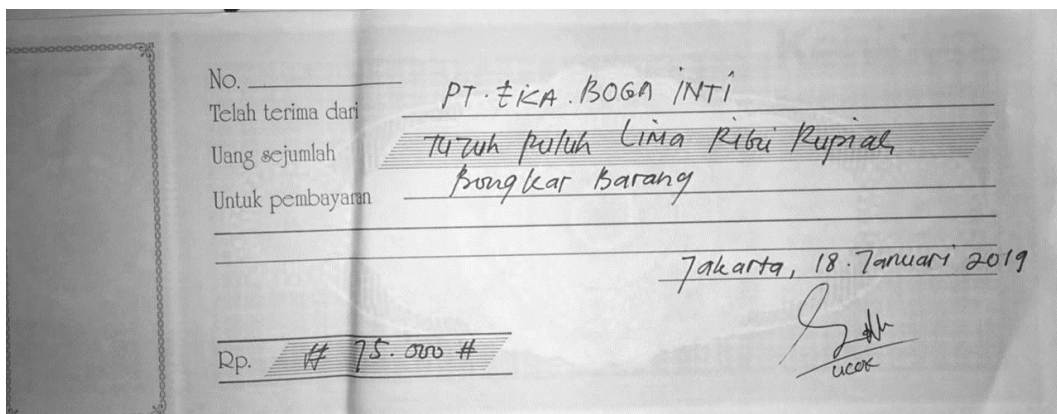 No.
Telah terima dari PT. EKA. BOGA INTI
Uang sejumlah Tujuh puluh Lima Ribu Rupiah
Untuk pembayaran Bongkar Barang
Jakarta, 18. Januari 2019
Rp. # 75.000 #
UCOK